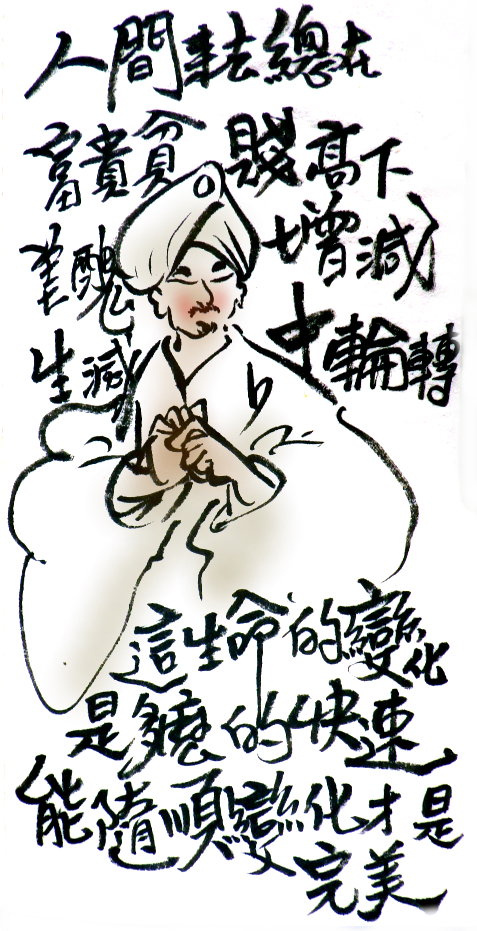 人間事去總在
富貴貧賤高下
美醜增減
生滅中輪轉
這生命的變化
是多麼的快速
能隨順變化才是
完美